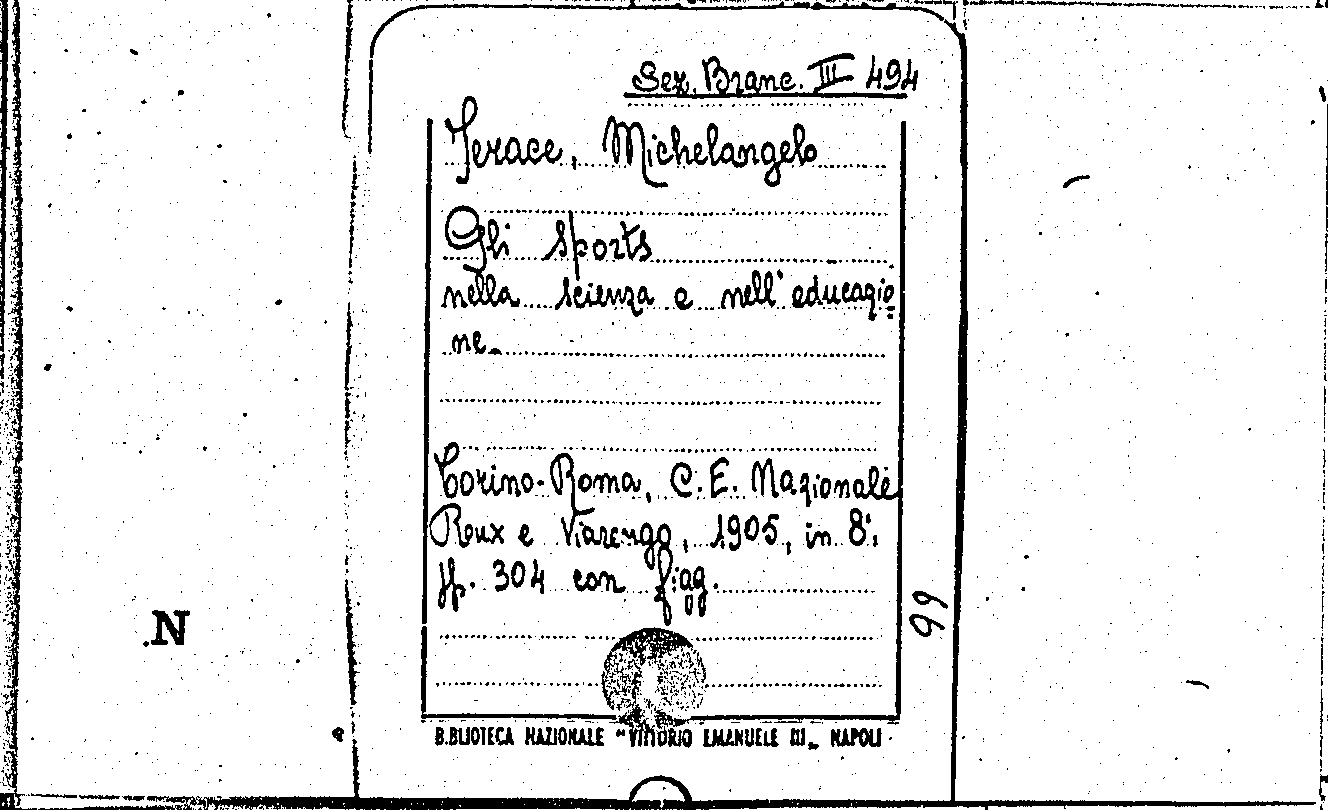 Sez. Branc. III 494
Jerace, Michelangelo
Gli sports
nella scienza e nell'educazio=
ne.
Torino-Roma, C. E. Nazionale
Roux e Viarengo, 1905, in 8°,
pp. 304 con figg.
99
.N
BIBLIOTECA NAZIONALE "VITTORIO EMANUELE III„ NAPOLI